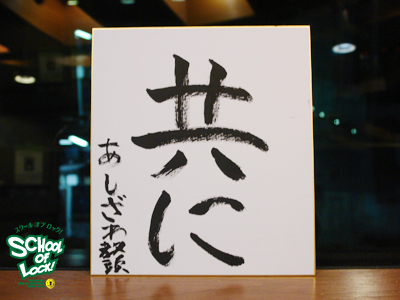 共に
あしざわ教頭
スクール オブ ロック!
SCHOOL
OF
LOCK!